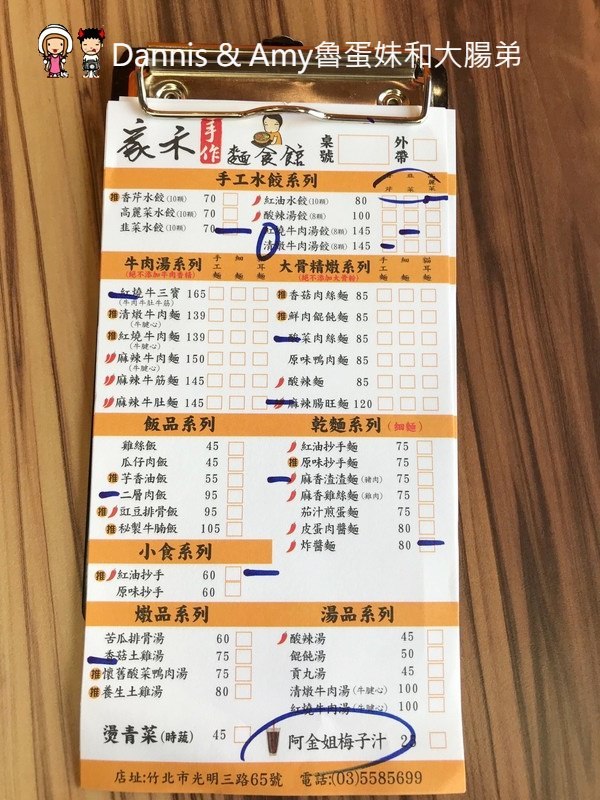 Dannis & Amy魯蛋妹和大腸弟
豪禾 手作 麵食館 桌號 外帶
手工水餃系列
推 香芹水餃(10顆) 70
高麗菜水餃(10顆) 70
韭菜水餃(10顆) 70
香芹 韭菜 高麗菜
紅油水餃(10顆) 80
酸辣湯餃(8顆) 100
紅燒牛肉湯餃(8顆) 145
清燉牛肉湯餃(8顆) 145
牛肉湯系列
(絕不添加牛肉香精)
手工麵 細麵 貓耳麵
紅燒牛三寶 165
(牛肉牛肚牛筋)
推 清燉牛肉麵 139
(牛腱心)
推 紅燒牛肉麵 139
(牛腱心)
麻辣牛肉麵 150
(牛腱心)
麻辣牛筋麵 145
麻辣牛肚麵 145
大骨精燉系列
(絕不添加大骨粉)
手工麵 細麵 貓耳麵
推 香菇肉絲麵 85
推 鮮肉餛飩麵 85
酸菜肉絲麵 85
原味鴨肉麵 85
酸辣麵 85
麻辣腸旺麵 120
飯品系列
雞絲飯 45
瓜仔肉飯 45
推 芋香油飯 55
二層肉飯 95
推 豇豆排骨飯 95
推 秘製牛腩飯 105
乾麵系列 (細麵)
紅油抄手麵 75
推 原味抄手麵 75
麻香渣渣麵(豬肉) 75
麻香雞絲麵(雞肉) 75
茄汁煎蛋麵 75
皮蛋肉醬麵 80
炸醬麵 80
小食系列
推 紅油抄手 60
原味抄手 60
燉品系列
苦瓜排骨湯 60
香菇土雞湯 75
推 懷舊酸菜鴨肉湯 75
推 養生土雞湯 80
湯品系列
酸辣湯 45
餛飩湯 50
貢丸湯 45
清燉牛肉湯(牛腱心) 100
紅燒牛肉湯(牛腱心) 100
燙青菜(時蔬) 45
阿金姐梅子汁 25
店址:竹北市光明三路65號 電話:(03)5585699